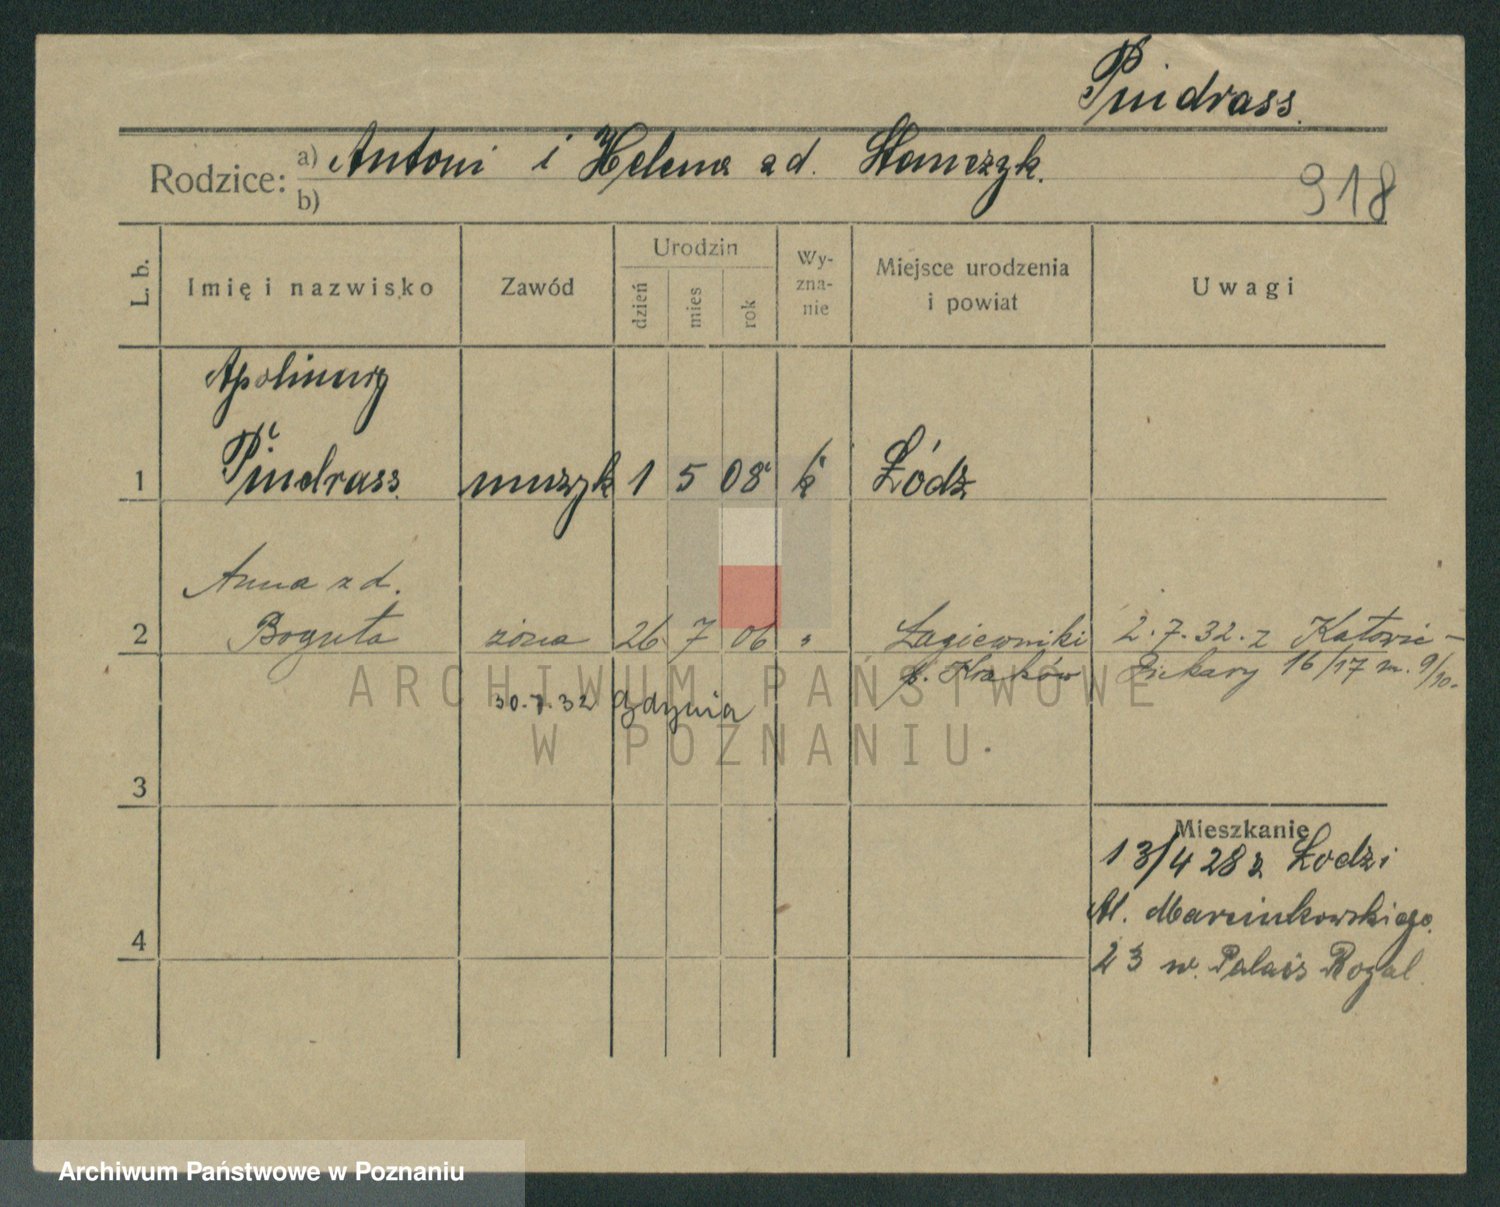 Pindrass.
Rodzice: a) Antoni i Helena z d. Stanczyk.
b)
918
L. b.
Imię i nazwisko
Zawód
Urodzin
dzień
mies
rok
Wy-
zna-
nie
Miejsce urodzenia
i powiat
Uwagi
Apolinary
1 Pindrass muzyk 1 5 08 k Łódź
Anna z d.
2 Boguta żona 26 7 06 " Łagiewniki 2.7.32. z Katowic –
p. Kraków Piekary 16/17 m. 9/10.
30.7.32 Gdynia
3
Mieszkanie
13/4 28 z Łodzi
4 Al. Marcinkowskiego
23 w. Palais Royal
ARCHIWUM PAŃSTWOWE
W POZNANIU
Archiwum Państwowe w Poznaniu